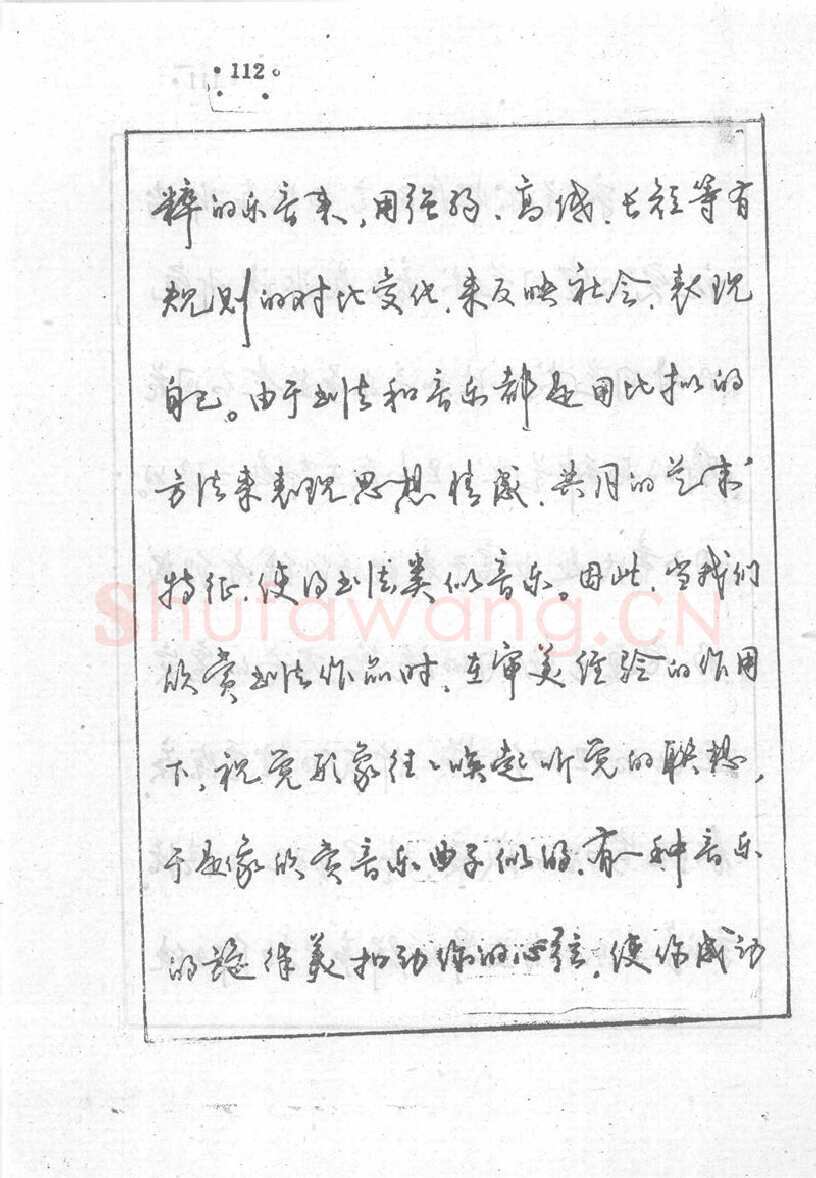 ·112·
粹的乐音来，用强弱、高低、长短等有
规则的对比变化，来反映社会，表现
自己。由于书法和音乐都是用比拟的
方法来表现思想情感，共同的艺术
特征，使得书法类似音乐。因此，当我们
欣赏书法作品时，在审美经验的作用
下，视觉形象往往唤起听觉的联想，
于是像欣赏音乐曲子似的，有一种音乐
的旋律美扣动你的心弦，使你感动
Shufawang.CN